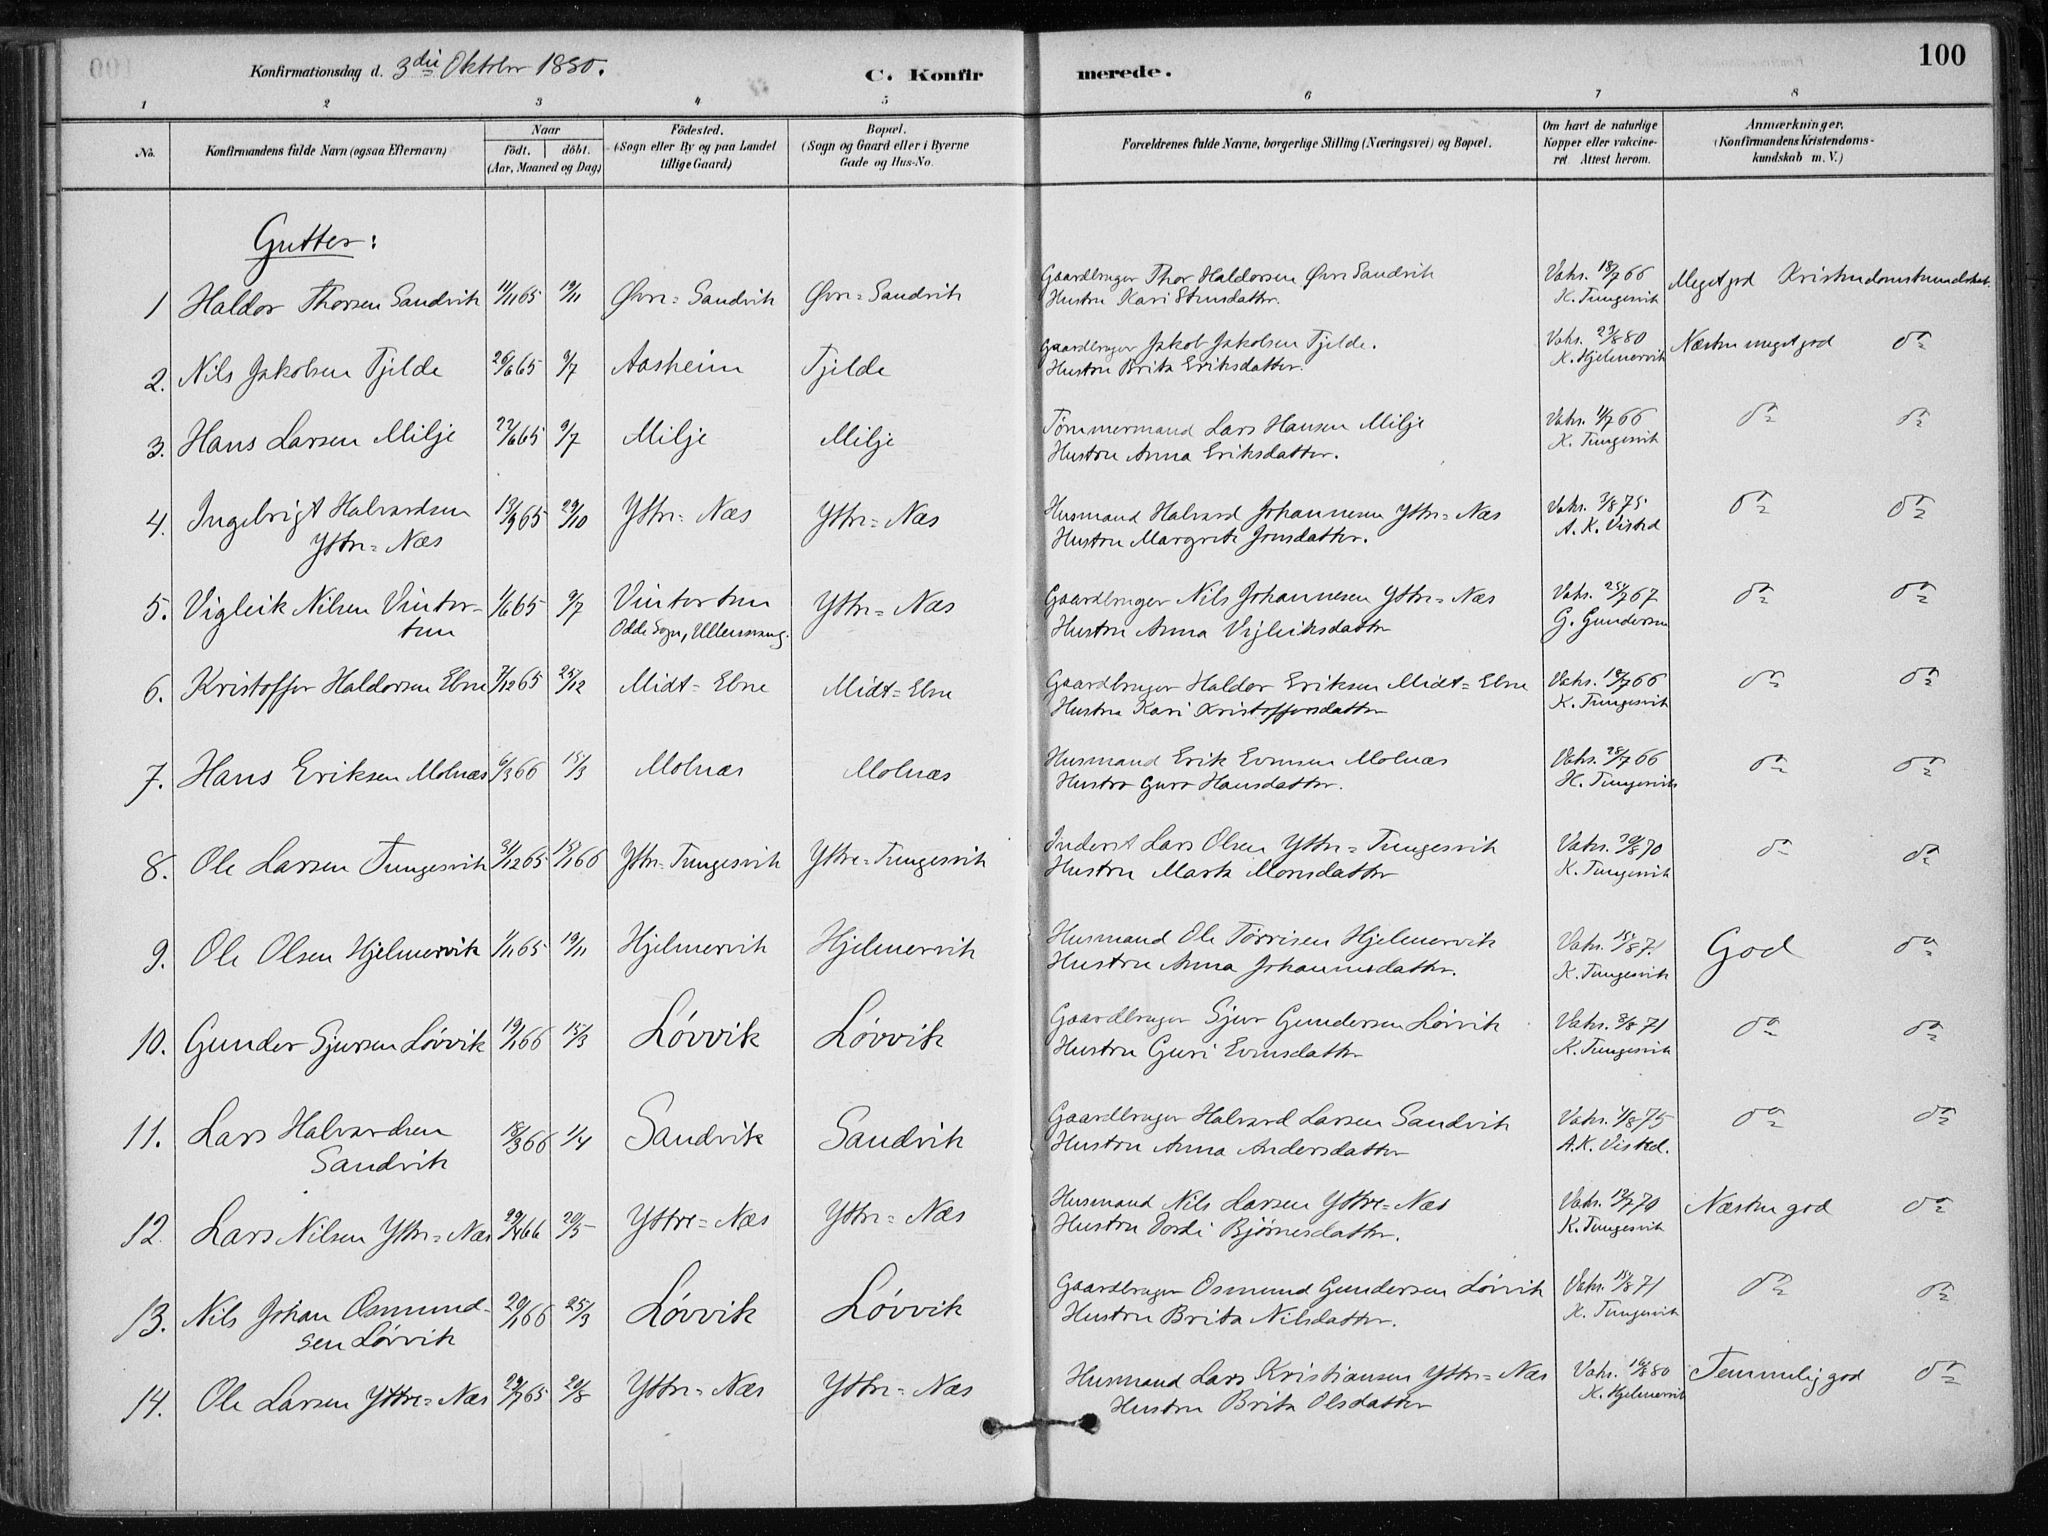 Konfirmationsdag d. 3die Oktober 1880.
C. Konfirmerede.
100
1 2 3 4 5 6 7 8
No.
Konfirmandens fulde Navn (ogsaa Efternavn)
Naar
født. døbt.
(Aar, Maaned og Dag)
Fødested.
(Sogn eller By og paa Landet
tillige Gaard)
Bopæl.
(Sogn og Gaard eller i Byerne
Gade og Hus-No.
Forældrenes fulde Navne, borgerlige Stilling (Næringsvei) og Bopæl.
Om havt de naturlige
Kopper eller vakcine-
ret. Attest herom.
Anmærkninger.
(Konfirmandens Kristendoms-
kundskab m. V.)
Gutter:
1 Haldor Thorsen Sandvik 14/11 65 19/11 Øvre=Sandvik Øvre=Sandvik Gaardbruger Thor Haldorsen Øvre Sandvik Vaks. 18/7 66 Meget god Kristendomskundskab.
Hustru Kari K. Tungesvik
2. Nils Jakobsen Tjelde 26/6 65 9/7 Aasheim Tjelde Gaardbruger Jakob Jakobsen Tjelde. Vaks. 23/8 80 Næsten meget god do
Hustru Brita Eriksdatter. K. Hjelmervik
3. Hans Larsen Milje 22/6 65 9/7 Milje Milje Tømmermand Lars Hansen Milje Vaks. 11/7 66 do do
Hustru Anna Eriksdatter. K. Tungesvik
4. Ingebrigt Halvardsen 13/9 65 29/10 Ytre=Næs Ytre=Næs Husmand Halvard Johannesen Ytre=Næs Vaks. 3/8 75 do do
Ytre=Næs Hustru Margrete Jonsdatter. A. K. Visted
5. Vigleik Nilsen Vinter- 1/6 65 9/7 Vintertun Ytre=Næs Gaardbruger Nils Johannesen Ytre=Næs Vaks. 25/7 67 do do
tun Odde Sogn, Ullensvang. Hustru Anna Vigleiksdatter G. Gundersen
6. Kristoffer Haldorsen Ebne 7/12 65 25/12 Midt=Ebne Midt=Ebne Gaardbruger Haldor Eriksen Midt=Ebne Vaks. 18/7 66 do do
Hustru Kari Kristoffersdatter K. Tungesvik
7. Hans Eriksen Molnæs 6/3 66 15/3 Molnæs Molnæs Husmand Erik Evensen Molnæs Vaks. 28/7 66 do do
Hustru Guro Hansdatter. K. Tungesvik
8. Ole Larsen Tungesvik 31/12 65 18/1 66 Ytre=Tungesvik Ytre=Tungesvik Inderst Lars Olsen Ytre=Tungesvik Vaks. 30/8 70 do do
Hustru Marta Monsdatter K. Tungesvik
9. Ole Olsen Hjelmervik 1/11 65 19/11 Hjelmervik Hjelmervik Husmand Ole Tørrisen Hjelmervik Vaks. 15/8 71. God do
Hustru Anna Johannesdatter. K. Tungesvik
10. Gunder Sjursen Løvvik 19/1 66 15/3 Løvvik Løvvik Gaardbruger Sjur Gundersen Løvvik Vaks. 8/8 71 do do
Hustru Guri Evensdatter K. Tungesvik
11. Lars Halvardsen 18/3 66 1/4 Sandvik Sandvik Gaardbruger Halvard Larsen Sandvik Vaks. 4/8 75 do do
Sandvik Hustru Anna Andersdatter A. K. Visted.
12. Lars Nilsen Ytre=Næs 29/4 66 20/5 Ytre=Næs Ytre=Næs Husmand Nils Larsen Ytre=Næs Vaks. 19/7 70 Næsten god do
Hustru Dordi Bjørnesdatter. K. Tungesvik
13. Nils Johan Osmund- 20/1 66 25/3 Løvvik Løvvik Gaardbruger Osmund Gundersen Løvvik Vaks. 15/8 71 do do
sen Løvvik Hustru Brita Nilsdatter. K. Tungesvik
14. Ole Larsen Ytre=Næs 29/7 65 20/8 Ytre=Næs Ytre=Næs Husmand Lars Kristiansen Ytre=Næs Vaks. 16/8 80 Temmelig god do
Hustru Brita Olsdatter K. Hjelmervik